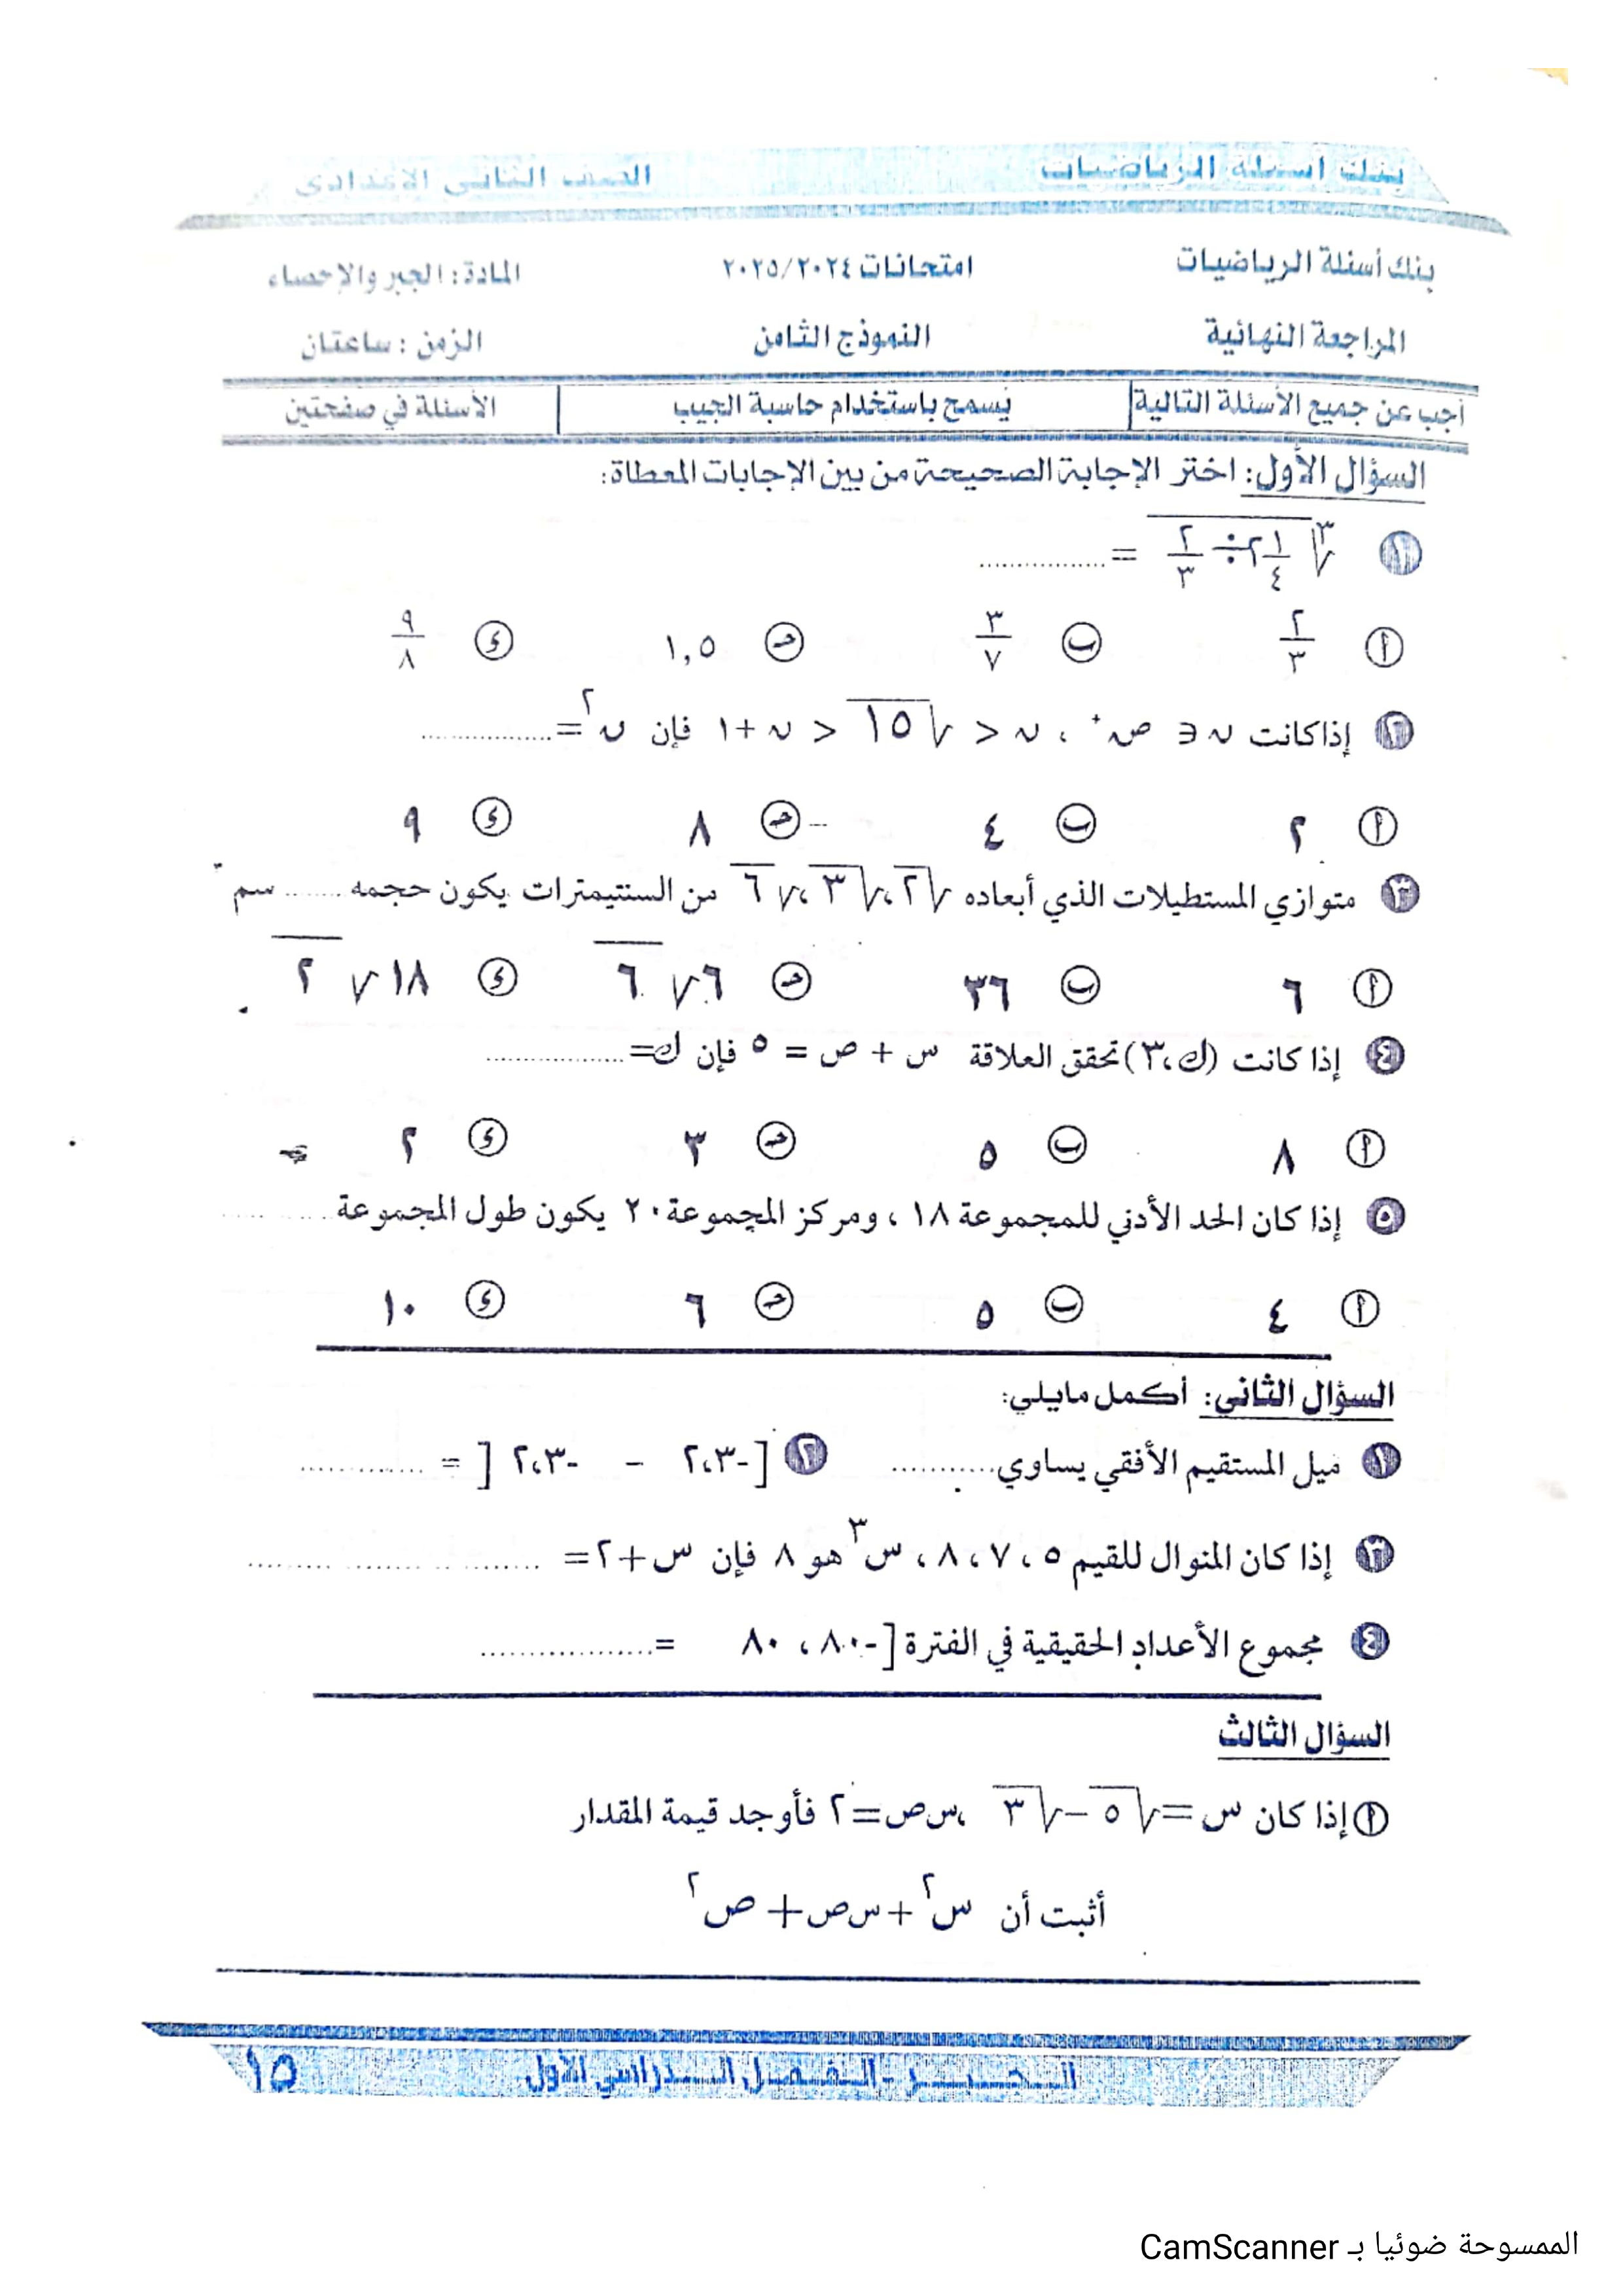 بنك أسئلة الرياضيات الصف الثاني الاعدادي
بنك أسئلة الرياضيات امتحانات ٢٠٢٥/٢٠٢٤ المادة: الجبر والإحصاء
المراجعة النهائية النموذج الثامن الزمن : ساعتان
أجب عن جميع الأسئلة التالية يُسمح باستخدام حاسبة الجيب الأسئلة في صفحتين
السؤال الأول: اختر الإجابة الصحيحة من بين الإجابات المعطاة:
١ ∛(٢ ١/٤ ÷ ٢/٣) = ................
أ ٢/٣ ب ٣/٧ جـ ١,٥ د ٩/٨
٢ إذا كانت ن ∈ ص⁺ ، ن < √١٥ < ن + ١ فإن ن² = ................
أ ٢ ب ٤ جـ ٨ د ٩
٣ متوازي المستطيلات الذي أبعاده √٢ ، √٣ ، √٦ من السنتيمترات يكون حجمه ........ سم
أ ٦ ب ٣٦ جـ ٦√٦ د ١٨√٢
٤ إذا كانت (ك،٣) تحقق العلاقة س + ص = ٥ فإن ك = ................
أ ٨ ب ٥ جـ ٣ د ٢
٥ إذا كان الحد الأدني للمجموعة ١٨ ، ومركز المجموعة ٢٠ يكون طول المجموعة ................
أ ٤ ب ٥ جـ ٦ د ١٠
السؤال الثاني: أكمل مايلي:
١ ميل المستقيم الأفقي يساوي............ ٢ [-٢،٣ - -٢،٣ [ = ............
٣ إذا كان المنوال للقيم ٥ ، ٧ ، ٨ ، س³ هو ٨ فإن س+٢= ................
٤ مجموع الأعداد الحقيقية في الفترة [-٨٠ ، ٨٠ = ................
السؤال الثالث
أ إذا كان س = √٥ - √٣ ،س ص = ٢ فأوجد قيمة المقدار
أثبت أن س² + س ص + ص²
الجبر - الفصل الدراسي الأول ١٥
الممسوحة ضوئيا بـ CamScanner